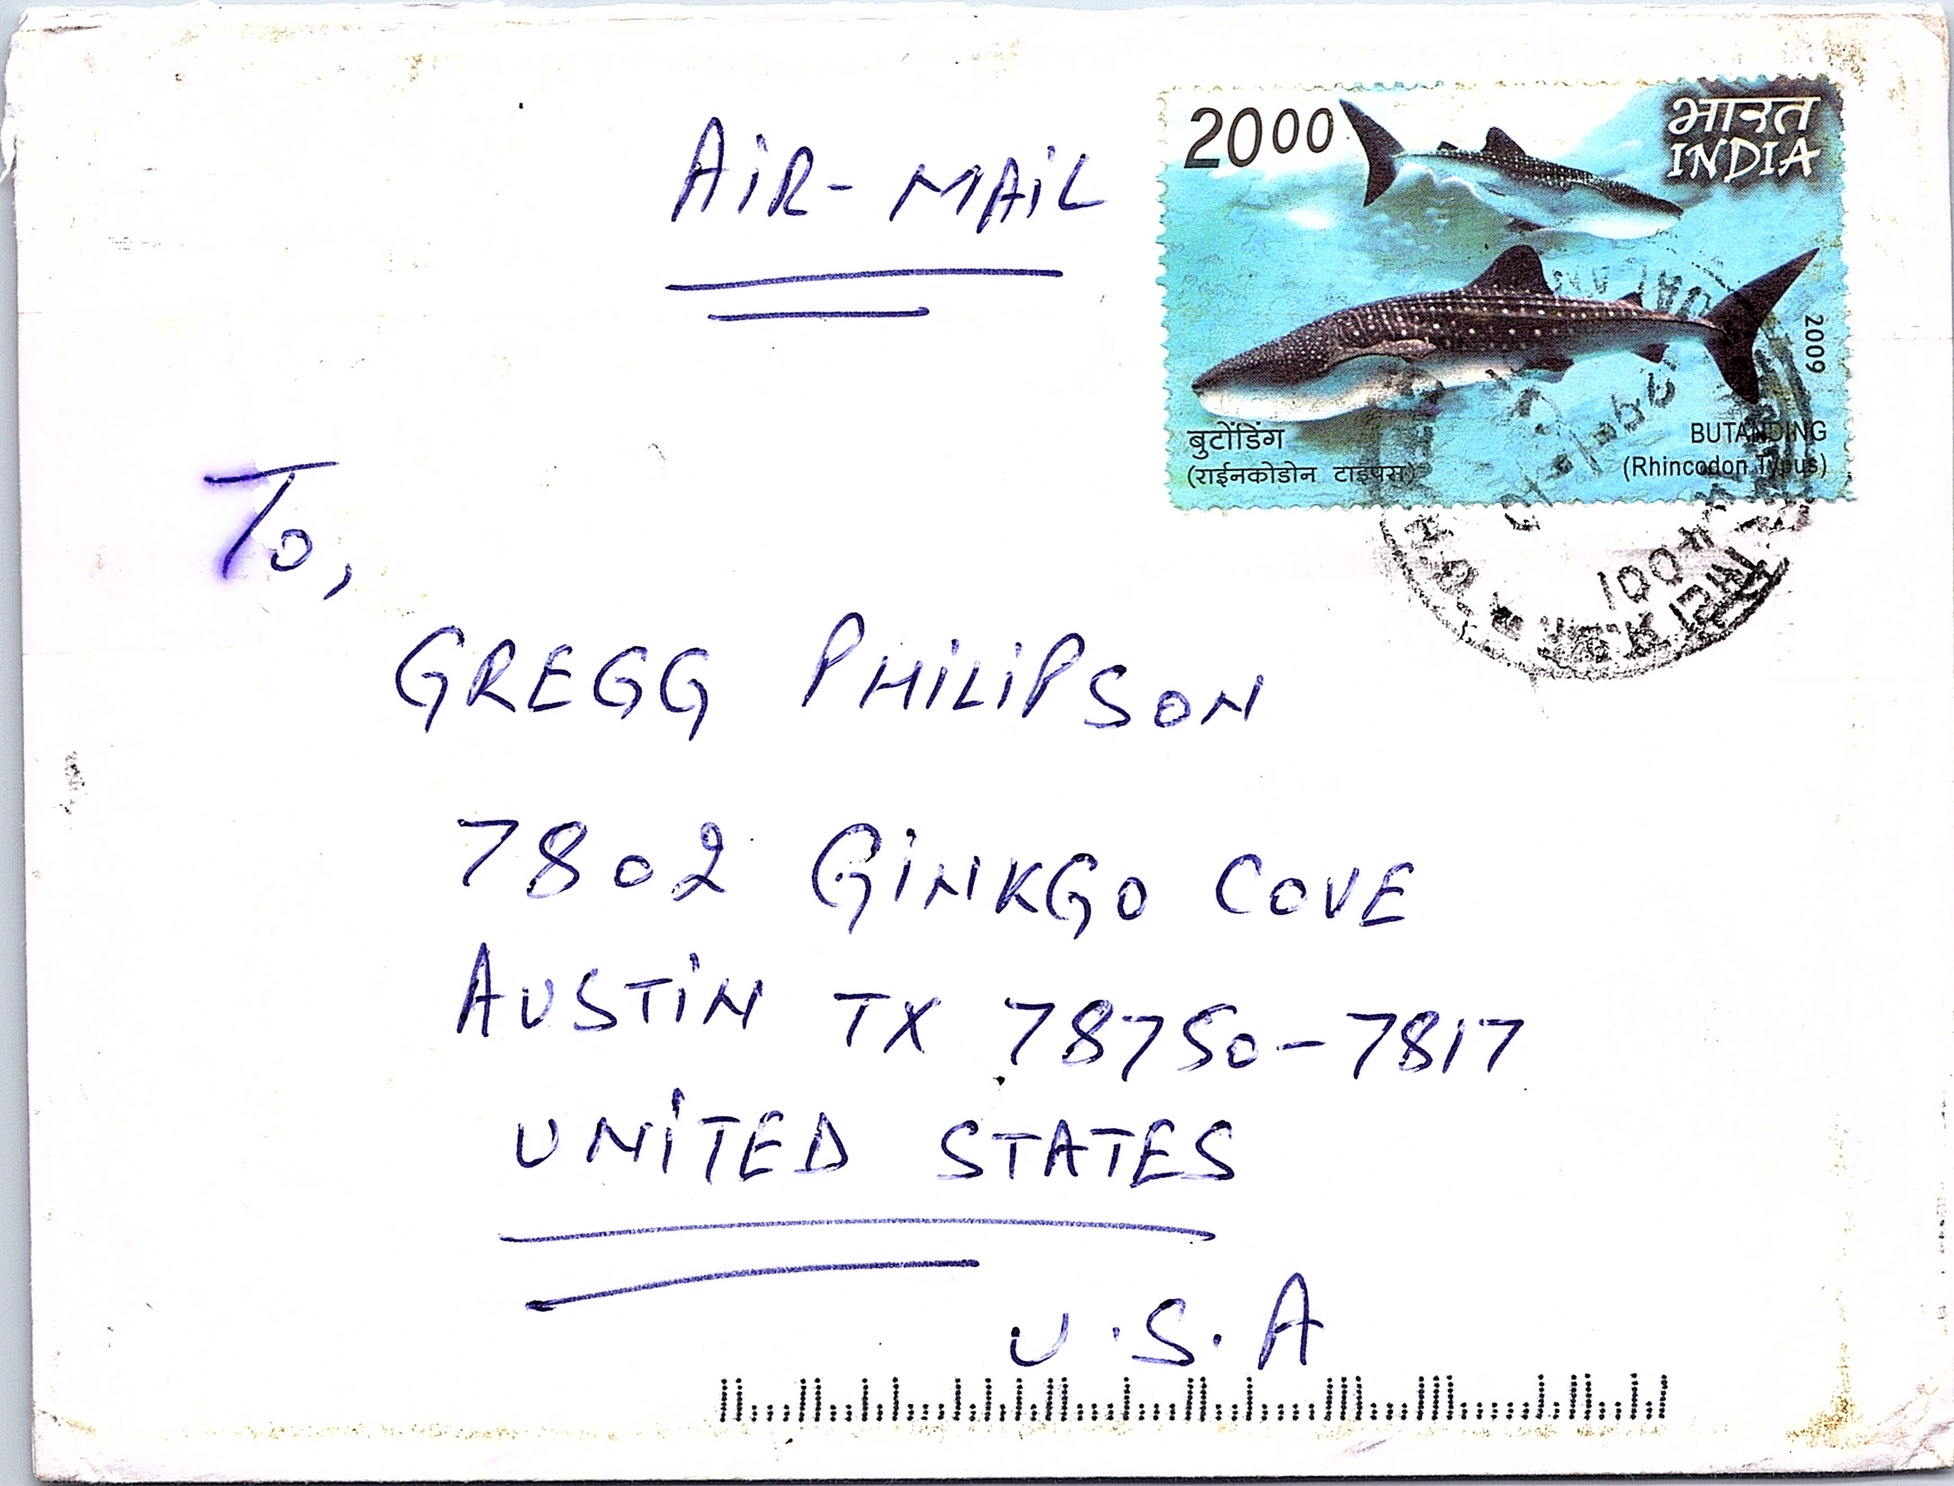 AiR-MAiL
2000
भारत
INDIA
2009
बुटोंडिंग
(राईनकोडोन टाइपस)
BUTANDING
(Rhincodon Typus)
To,
GREGG PHiLiPSON
7802 GiNKGO COVE
AUSTiN TX 78750-7817
UNiTED STATES
U.S.A